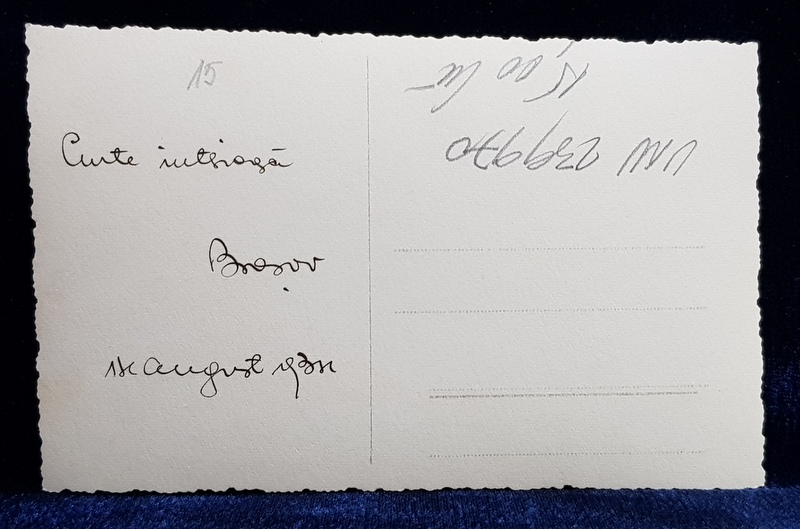 15
Curte interioară
Brașov
14 august 1934
15,00 lei